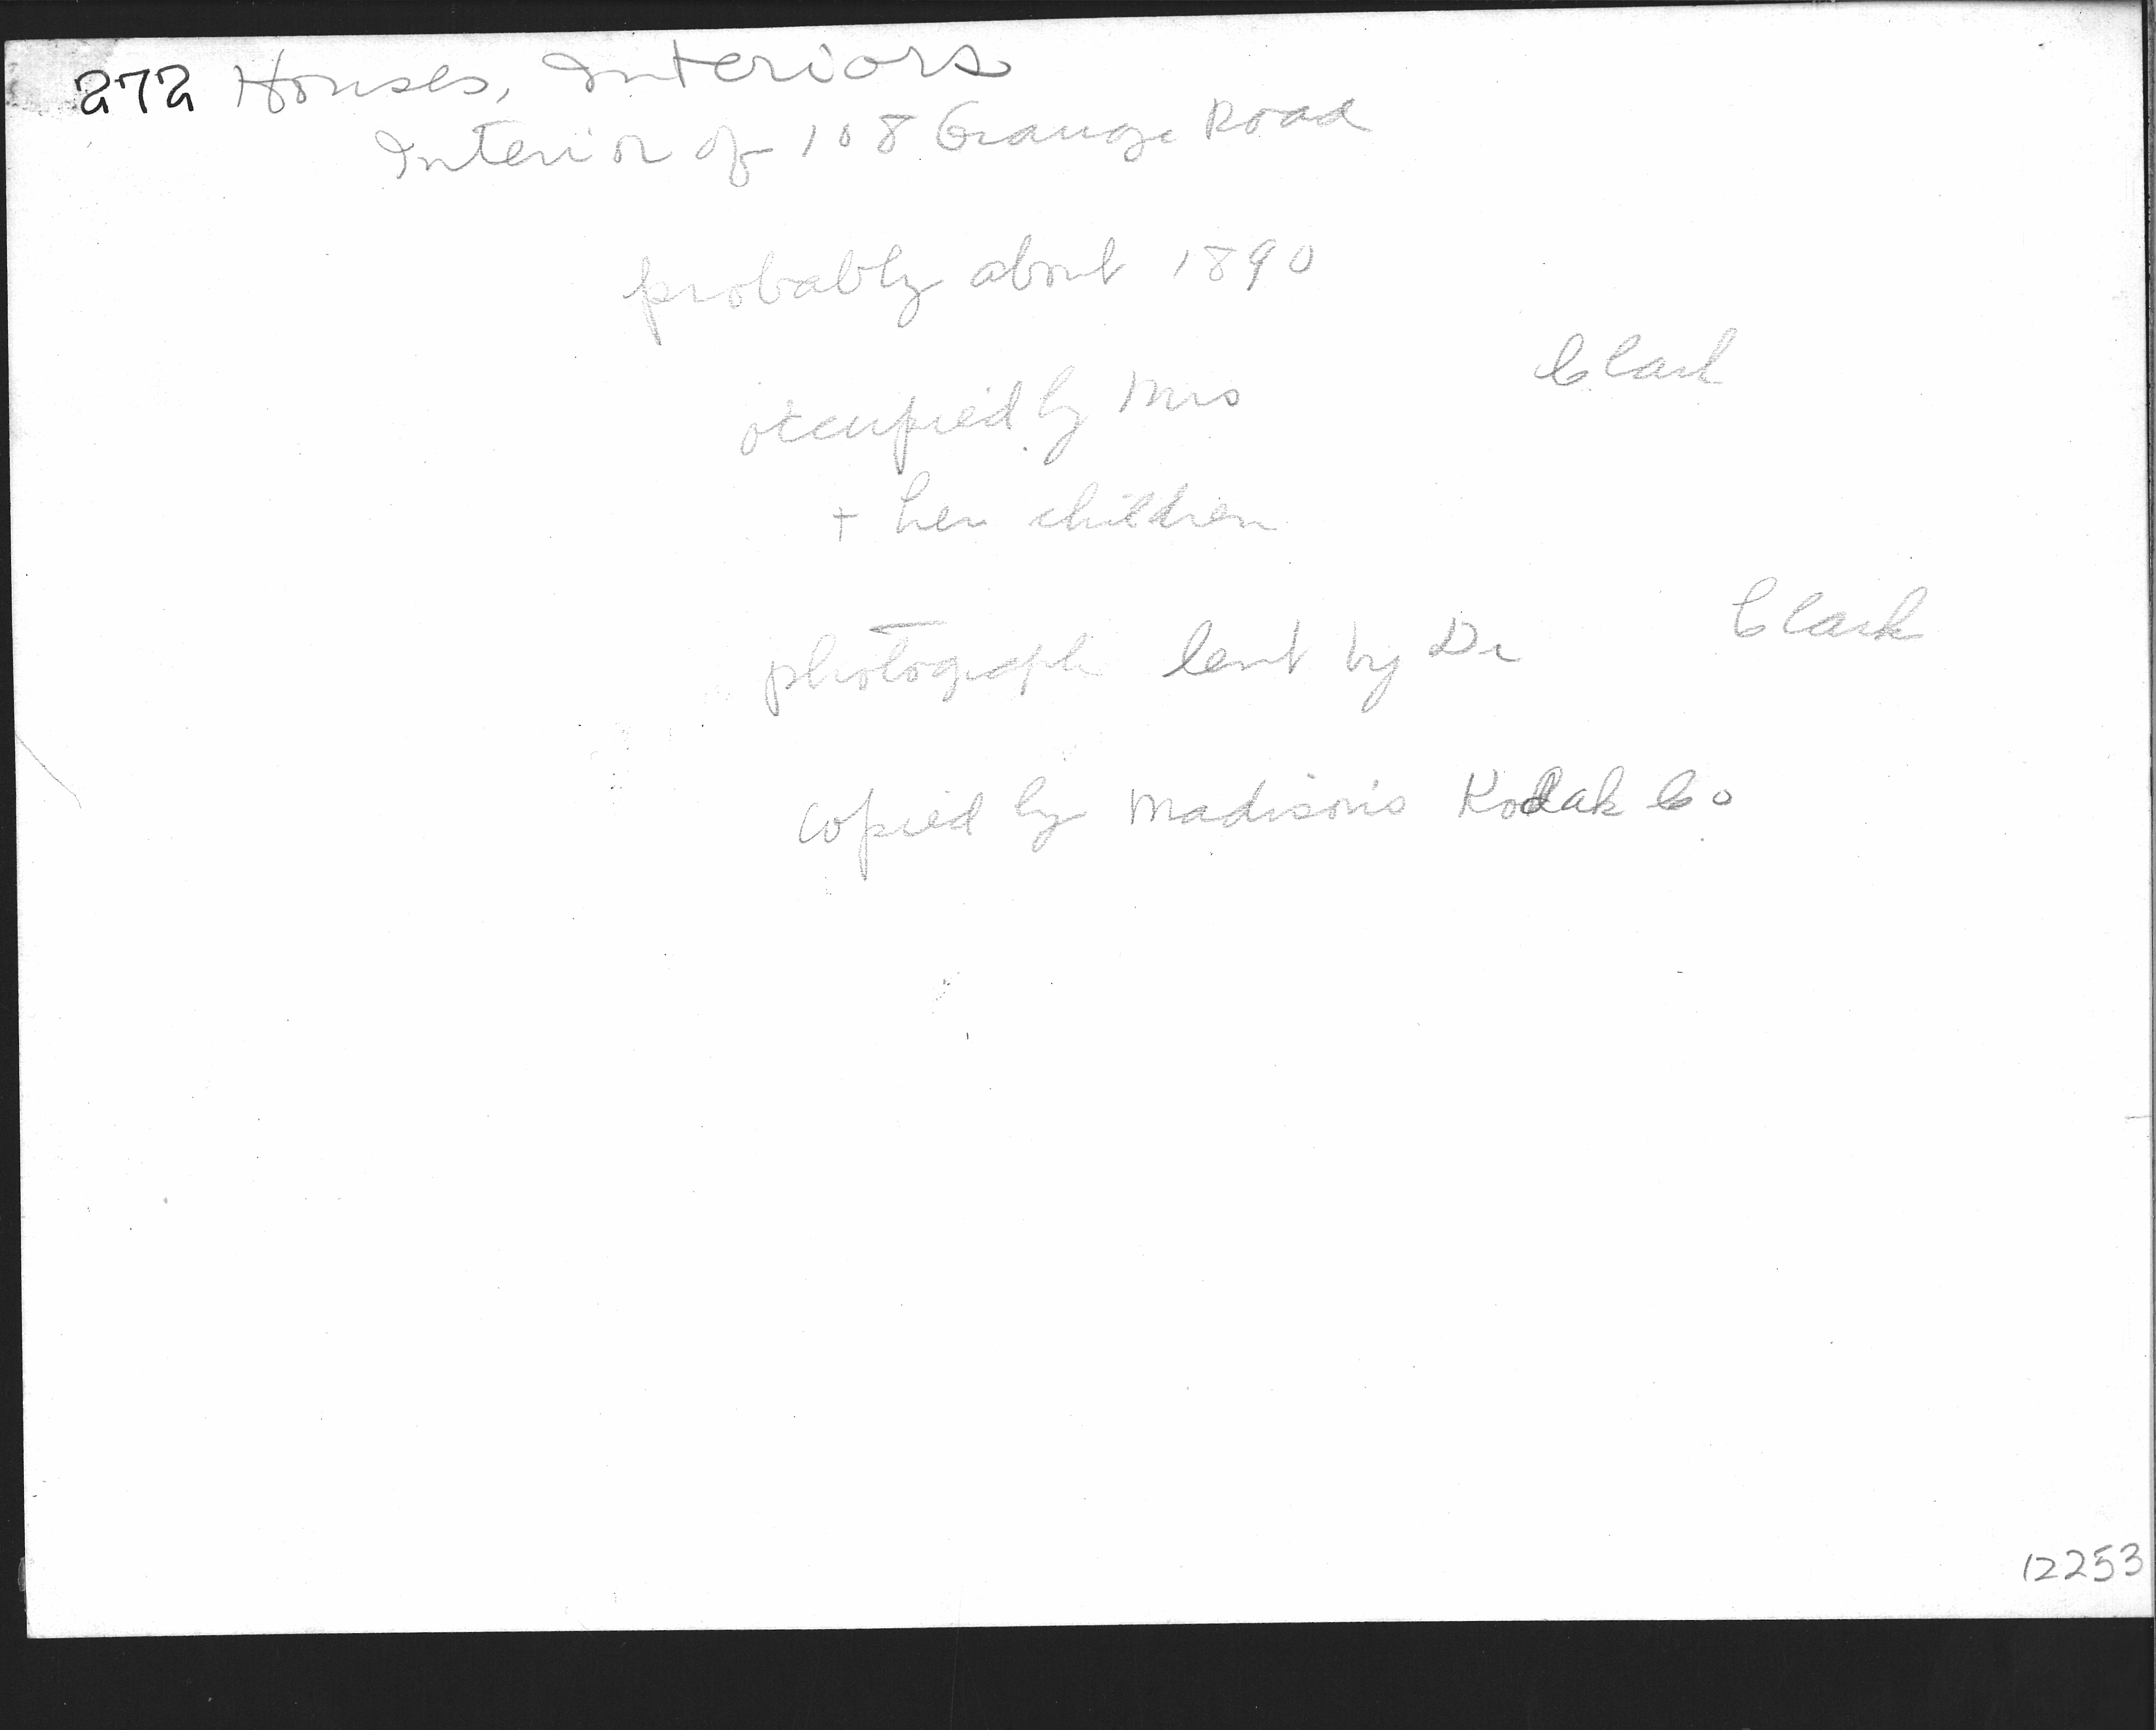 272 Houses, Interiors
Interior of 108 Grange Road
probably about 1890
occupied by Mrs Clark
+ her children
photograph lent by Dr Clark
copied by Madison's Kodak Co
12253